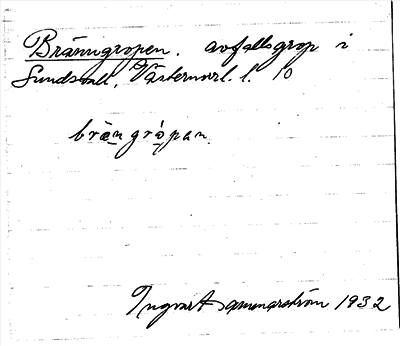 Bränngropen. avfallsgrop i
Sundsvall, Västernorrl. l. 10
brängròpan.
Ingvart Sammarström 1932